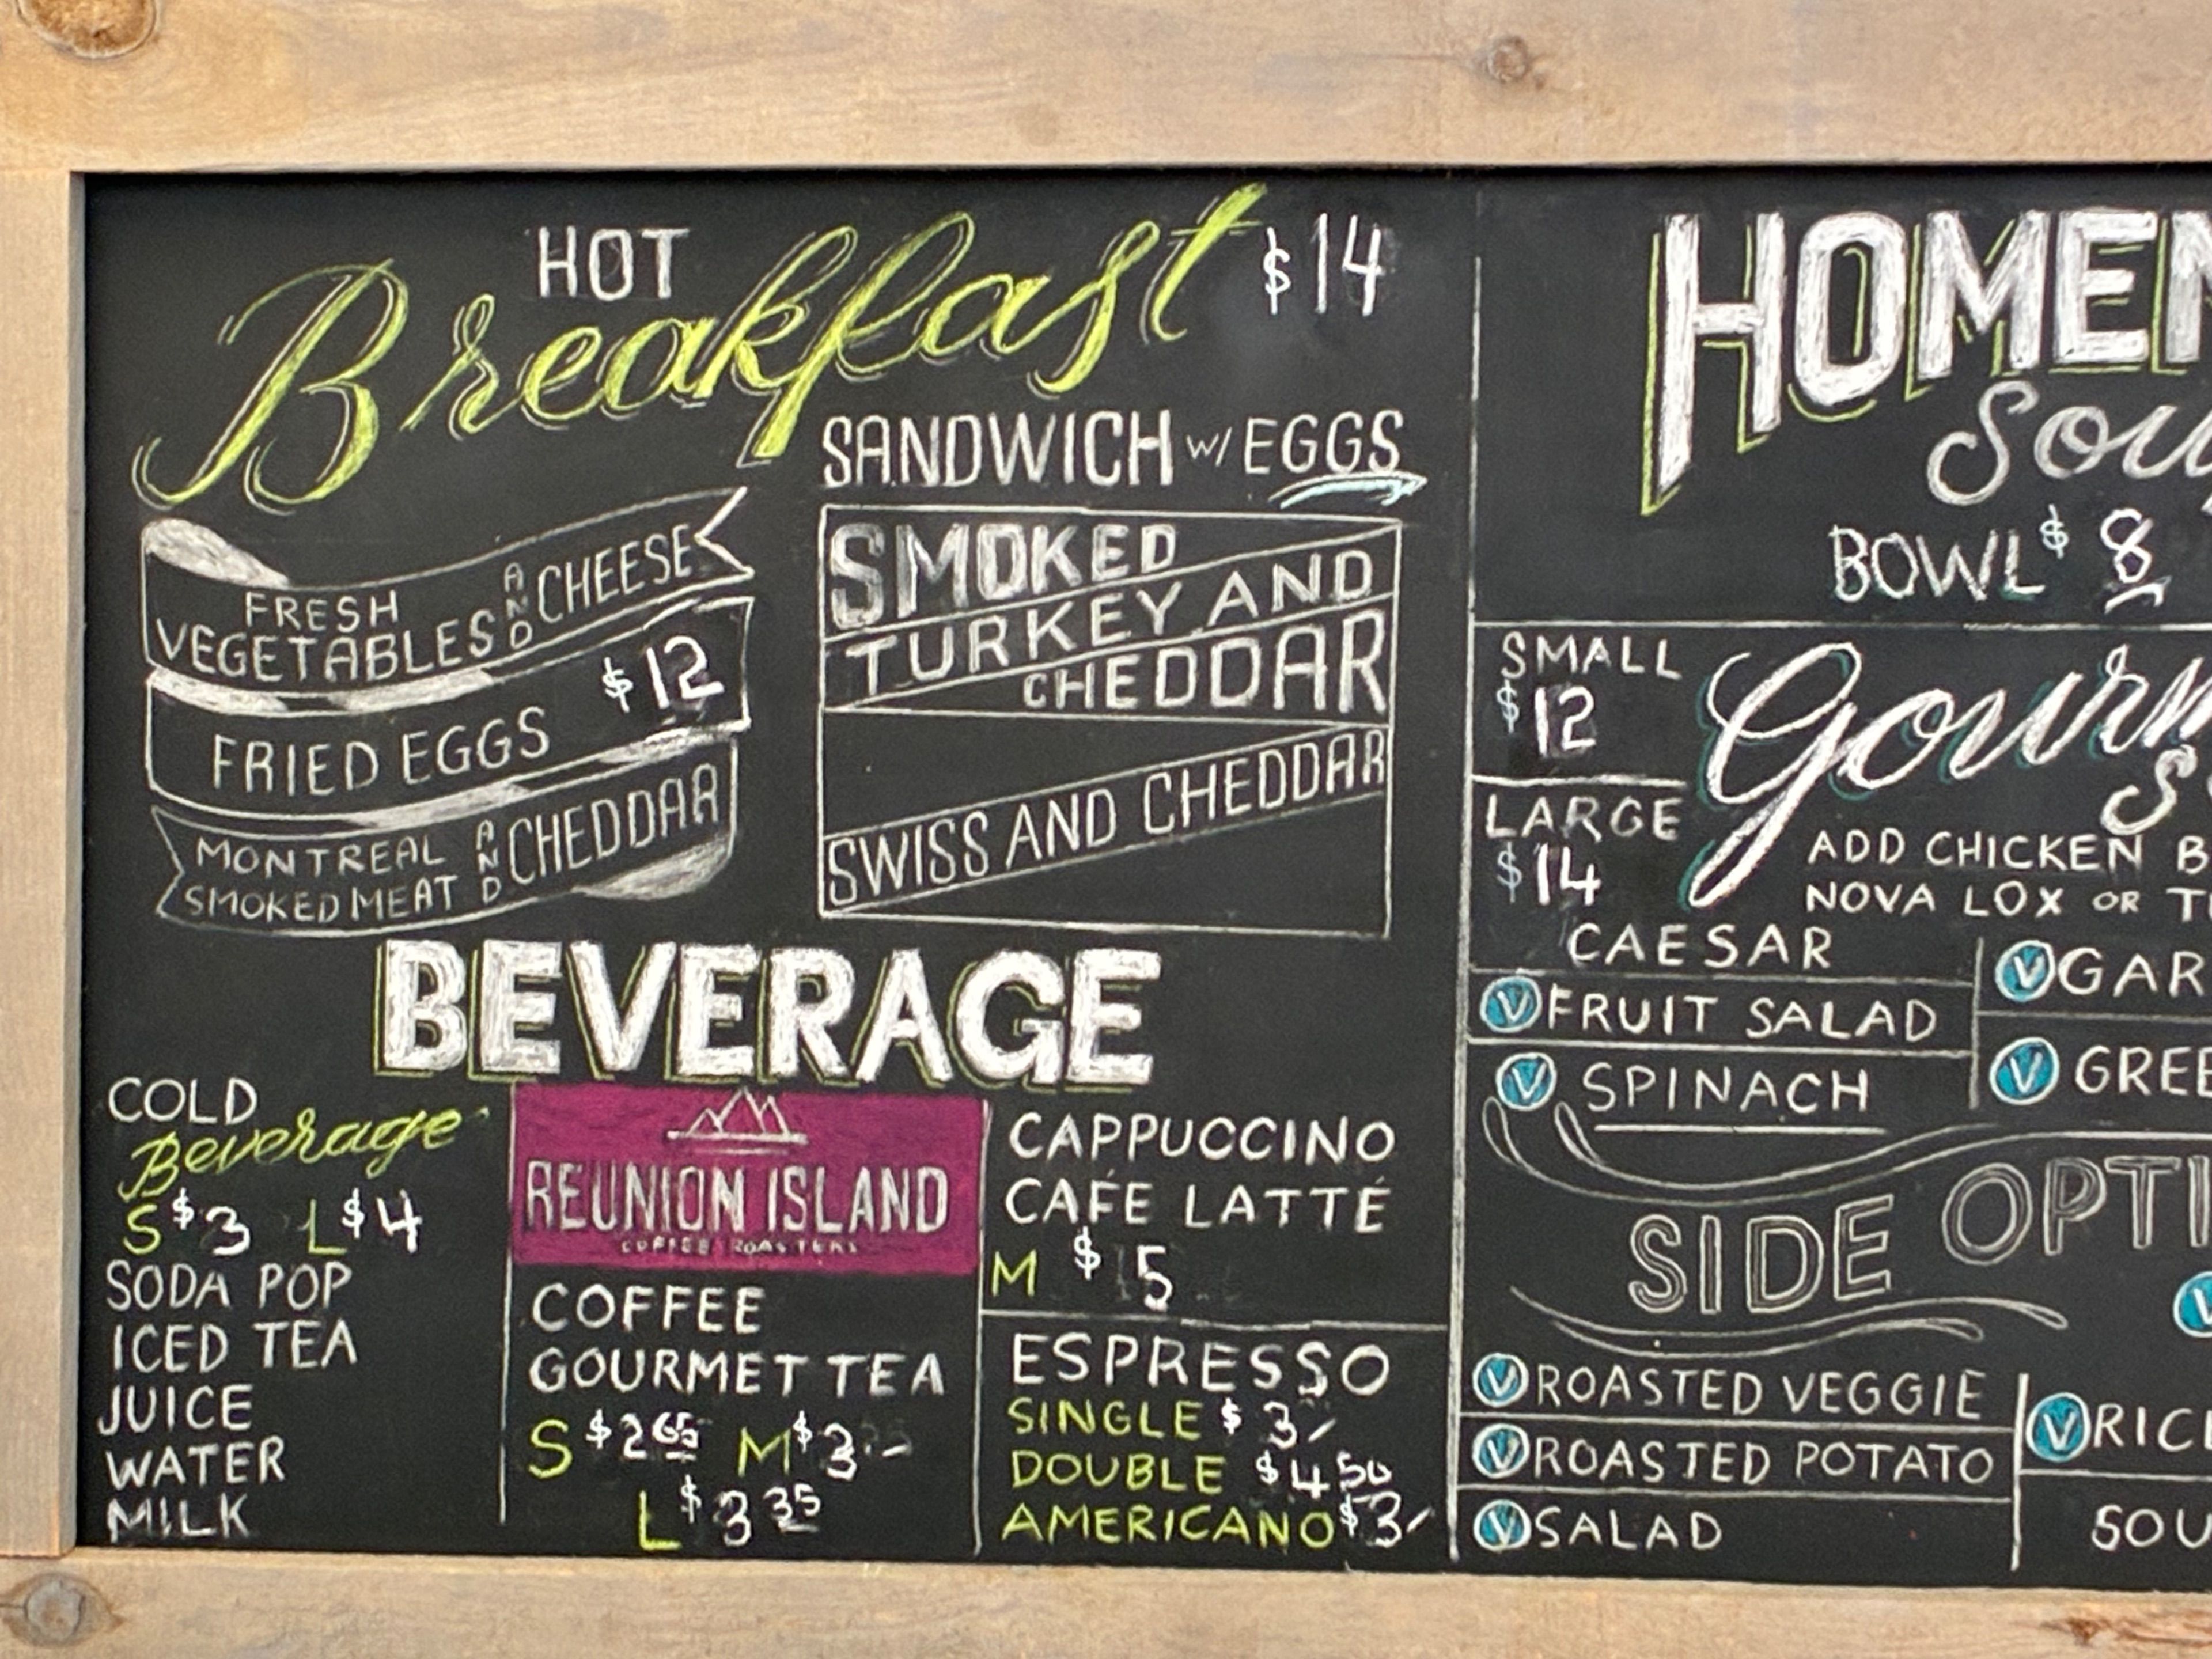 HOT
Breakfast $14
SANDWICH W/ EGGS
FRESH
VEGETABLES AND CHEESE
FRIED EGGS $12
MONTREAL
SMOKED MEAT AND CHEDDAR
SMOKED
TURKEY AND
CHEDDAR
SWISS AND CHEDDAR
BEVERAGE
COLD
Beverage
S $3 L $4
SODA POP
ICED TEA
JUICE
WATER
MILK
REUNION ISLAND
COFFEE ROASTERS
COFFEE
GOURMET TEA
S $2 65 M $3.-
L $3 35
CAPPUCCINO
CAFE LATTÉ
M $5
ESPRESSO
SINGLE $3/
DOUBLE $4 50
AMERICANO $3/
HOMEM
Sou
BOWL $8
SMALL
$12
LARGE
$14
Gourm
S
ADD CHICKEN B
NOVA LOX OR T
CAESAR
V FRUIT SALAD
V SPINACH
V GAR
V GREE
SIDE OPTI
V ROASTED VEGGIE
V ROASTED POTATO
V SALAD
V
V RIC
SOU